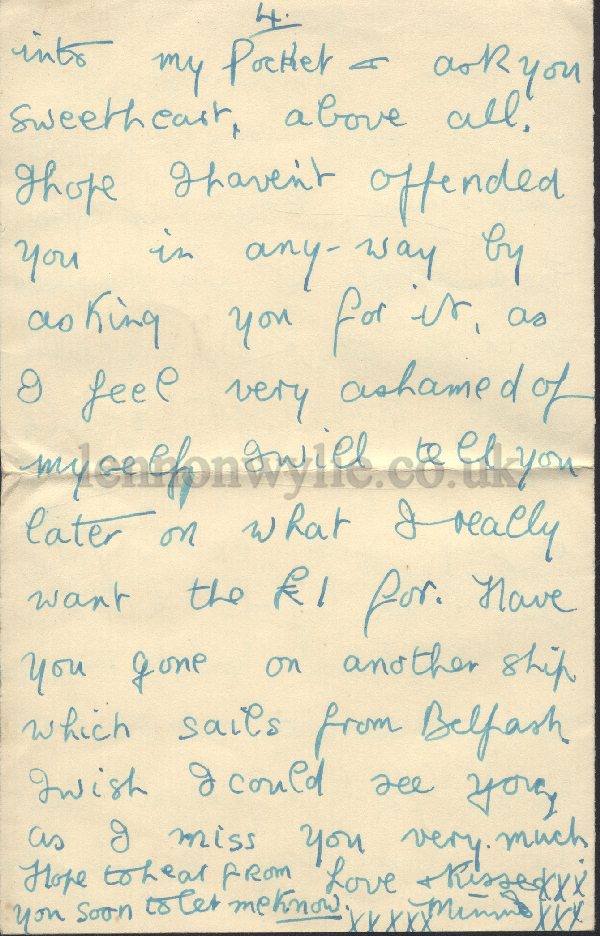 4.
into my Pocket & ask you
sweetheart, above all.
I hope I haven't offended
you in any-way by
asking you for it, as
I feel very ashamed of
myself, I will tell you
lennonwylie.co.uk
later on what I really
want the £1 for. Have
you gone on another ship
which sails from Belfast.
I wish I could see you,
as I miss you very much
Hope to hear from Love & Kisses XXX
you soon to let me know. XXXXX Minnie XXX